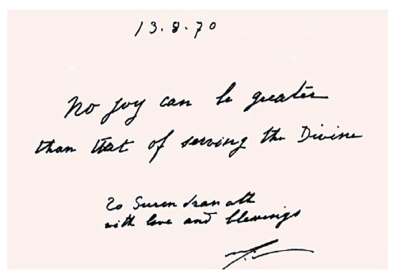 13.8.70
No joy can be greater
than that of serving the Divine
To Surendranath
with love and blessings